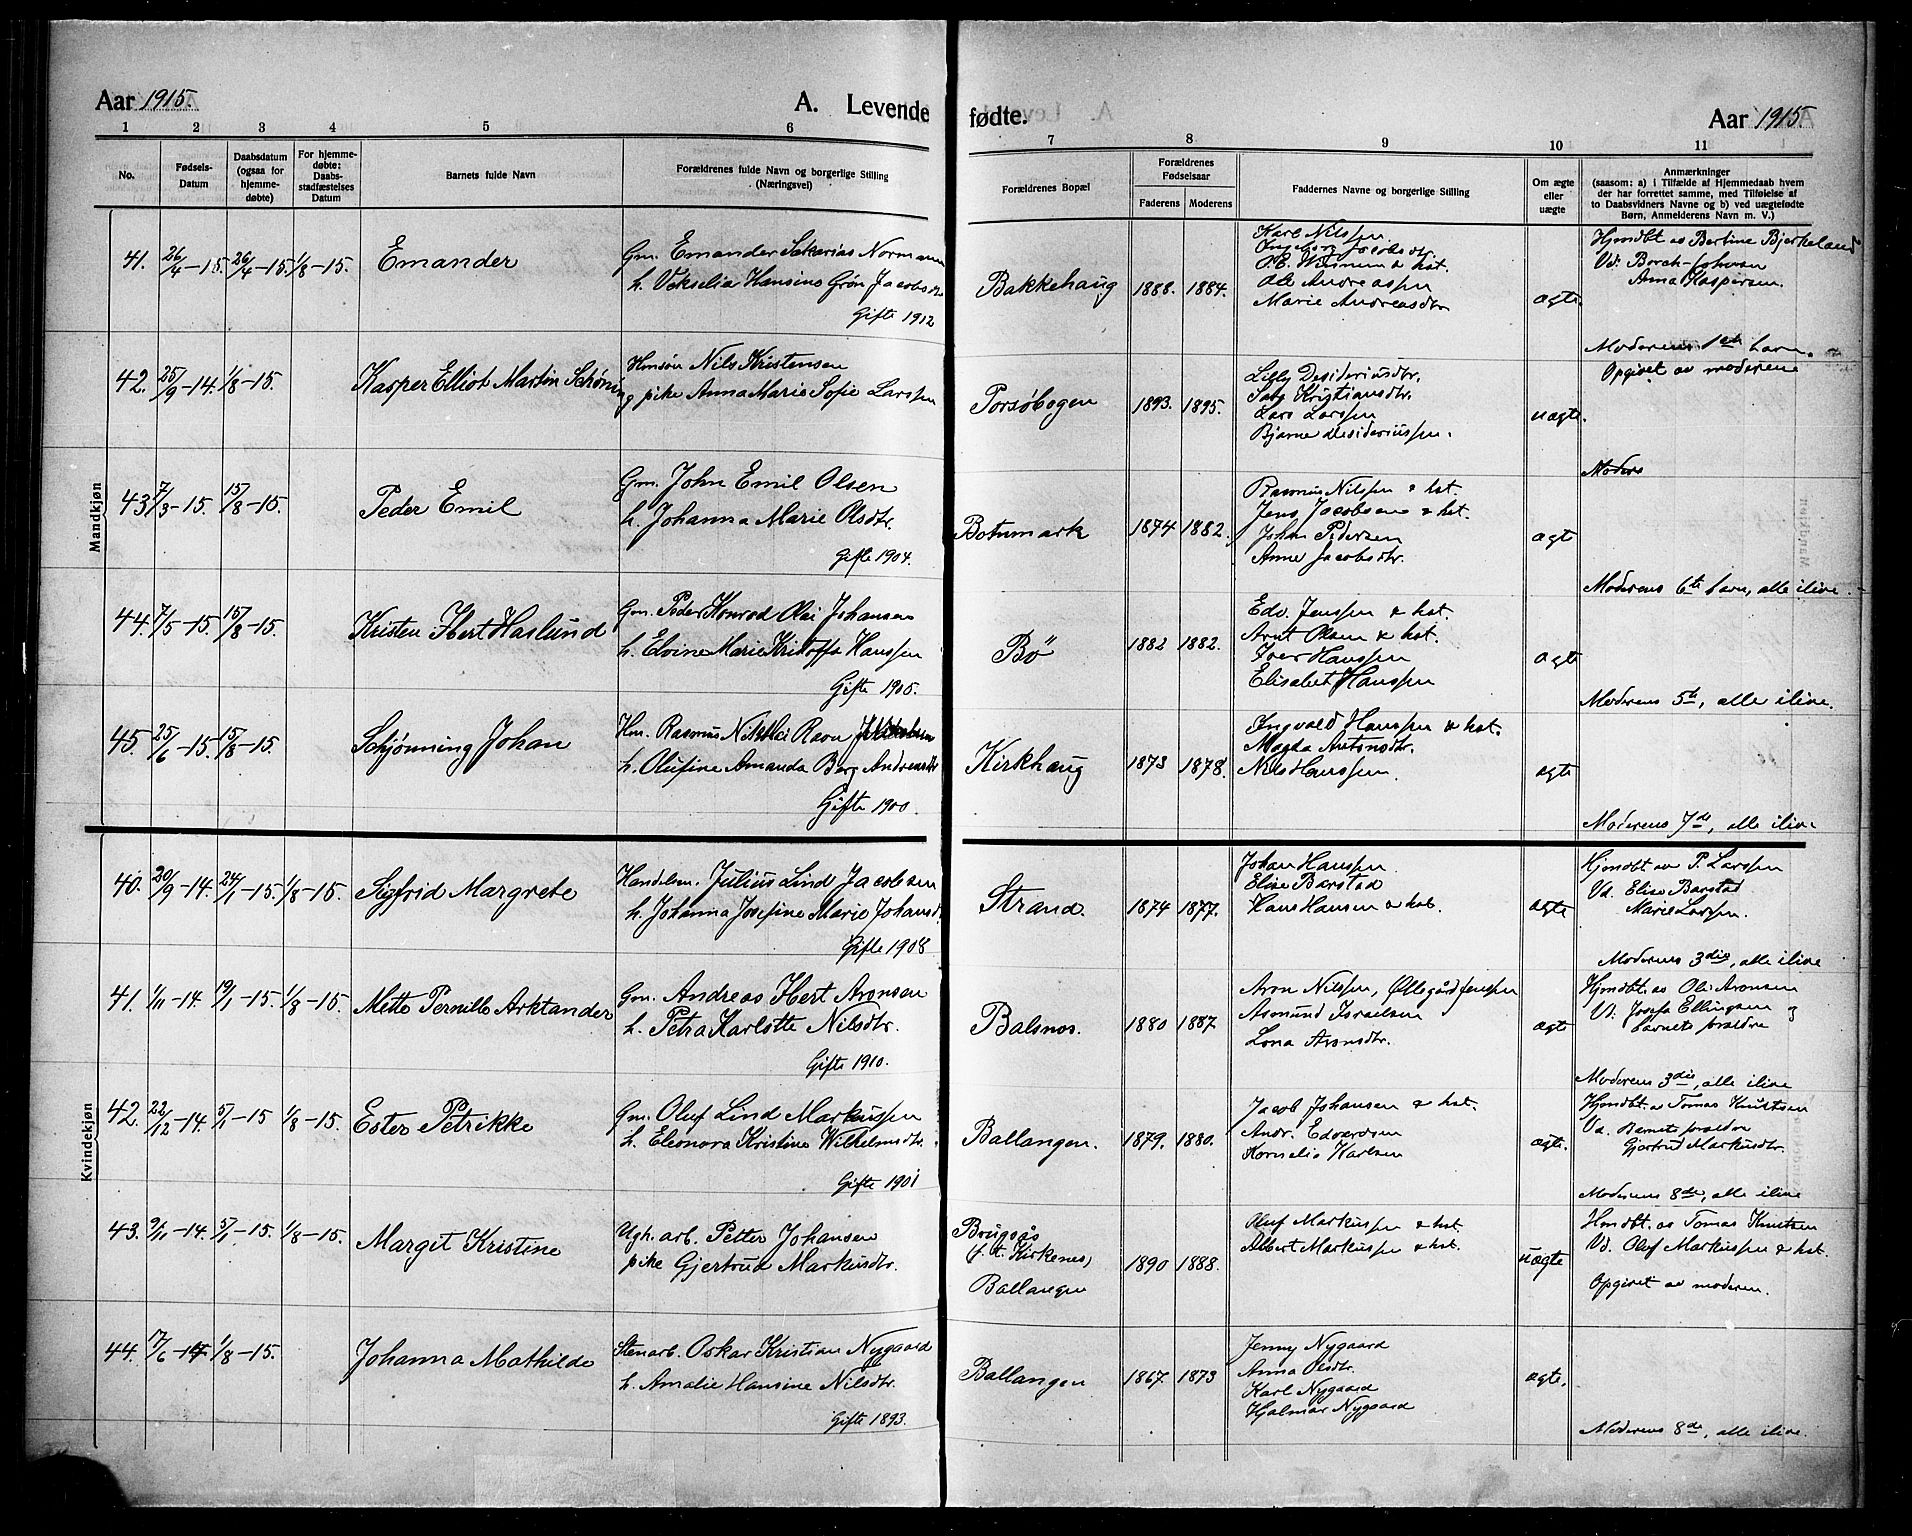 Aar 1915.
A. Levende
fødte.
Aar 1915.
1 2 3 4 5 6 7 8 9 10 11
No.
Fødsels-
Datum
Daabsdatum
(ogsaa for
hjemme-
døbte)
For hjemme-
døbte:
Daabs-
stadfæstelses
Datum
Barnets fulde Navn
Forældrenes fulde Navn og borgerlige Stilling
(Næringsvei)
Forældrenes Bopæl
Forældrenes
Fødselsaar
Faderens Moderens
Faddernes Navne og borgerlige Stilling
Om ægte
eller
uægte
Anmærkninger
(saasom: a) i Tilfælde af Hjemmedaab hvem
der har forrettet samme, med Tilføielse af
to Daabsvidners Navne og b) ved uægtefødte
Børn, Anmelderens Navn m. V.)
Mandkjøn
41. 26/4-15. 26/4-15. 1/8-15. Emander
Gm. Emander Sakarias Normann
h. Vekselia Hansine Grøn Jacobsdtr
Gifte 1912
Bakkehaug 1888. 1884.
Karl Nilssen
Ingeborg Jacobsdtr.
Ole Andreassen
Marie Andreasdtr
ægte
Hjmdbt av Bertine Bjerkeland
Vd. Borch-Johnsen
Anna Kaspersen.
Moderens 1ste barn.
42. 25/9-14. 1/8-15. Kasper Elliot Martin Schøning
Hmsøn Nils Kristensen
pike Anna Marie Sofie Larssen
Porsøbogen 1893. 1895.
Lilly Desideriusdtr.
Kristiansdtr.
Lars Larssen
Bjarne Desideriussen.
uægte.
Opgivet av moderene
Moders
43. 7/3-15. 15/8-15. Peder Emil
Gm. John Emil Olsen
h. Johanna Marie Olsdtr.
Gifte 1904.
Botnmark 1874 1882.
Rasmus Nilssen & hst.
Jens Jacobsen & hst.
Johan Pedersen
Anne Jacobsdtr.
ægt
Moderens 6te barn, alle ilive.
44. 7/5-15. 15/8-15. Kristen Hbert Haslund
Gm. Peder Konrad Olai Johansen
h. Elvine Marie Kristoffa Hanssen
Gifte 1905.
Bø 1882 1882.
Edv. Jenssen & hst.
Arnt Olsen & hst.
Iver Hanssen
Elisabet Hanssen
ægte
Moderens 5te, alle ilive.
45. 25/6-15. 15/8-15. Schjønning Johan
Hm. Rasmus Nikolai Ravn
h. Olufine Amanda Berg Andreasdtr
Gifte 1900.
Kirkhaug 1873 1878.
Ingvald Hanssen & hst.
Magda Antonsdtr.
Nils Hanssen.
ægte
Moderens 7de, alle ilive
Kvindekjøn
40. 20/9-14. 24/1-15. 1/8-15. Sigfrid Margrete
Handelsm. Julius Lind Jacobsen
h. Johanna Josefine Marie Johansdtr
Gifte 1908
Strand. 1874 1877.
Johan Hanssen
Elise Barstad
Hans Hansen & hst.
ægte
Hjmdbt av P. Larssen
Vd. Elise Barstad
Marie Larssen.
Moderens 3die, alle ilive
41. 1/11-14. 19/1-15. 1/8-15. Mette Pernille Arktander
Gm. Andreas Hbert Aronsen
h. Petra Karlotte Nilsdtr.
Gifte 1910.
Balsnes. 1880 1887.
Aron Nilssen, Øllegård Jenssen
Asmund Israelsen
Lona Aronsdtr.
ægte
Hjmdbt. av Ole Aronsen
Vd. Josefa Ellingsen og
barnets foreldre
Moderens 3die, alle ilive
42. 22/12-14. 5/1-15 1/8-15. Ester Petrikke
Gm. Oluf Lind Markussen
h. Eleonora Kristine Wilhelmsdtr.
Gifte 1901
Ballangen. 1879. 1880.
Jacob Johansen & hst.
Andr. Edvardsen
Kornelia Karlsen
ægte.
Hjmdbt. av Tomas Knutsen
Vd. Barnets foreldre
Gjertrud Markusdtr.
Moderens 8de, alle ilive
43. 9/11-14. 5/1-15. 1/8-15. Margit Kristine
Ugh. arb. Petter Johansen
pike Gjertrud Markusdtr.
Brugsås
(f. t. Kirkenes)
Ballangen 1890 1888.
Oluf Markussen & hst.
Albert Markussen & hst.
uægte
Hmdbt. av Tomas Knutsen
Vd. Oluf Markussen & hst.
Opgivet av moderen.
44. 17/6-14 1/8-15. Johanna Mathilde
Stenarb. Oskar Kristian Nygaard
h. Amalie Hansine Nilsdtr.
Gifte 1893.
Ballangen 1867. 1873
Jenny Nygaard
Anna Olsdtr.
Karl Nygaard
Hjalmar Nygaard
ægte.
Moderens 8de, alle ilive.